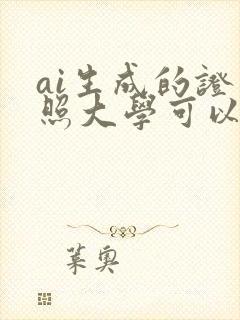 ai生成的證
照大學可以
葉奧